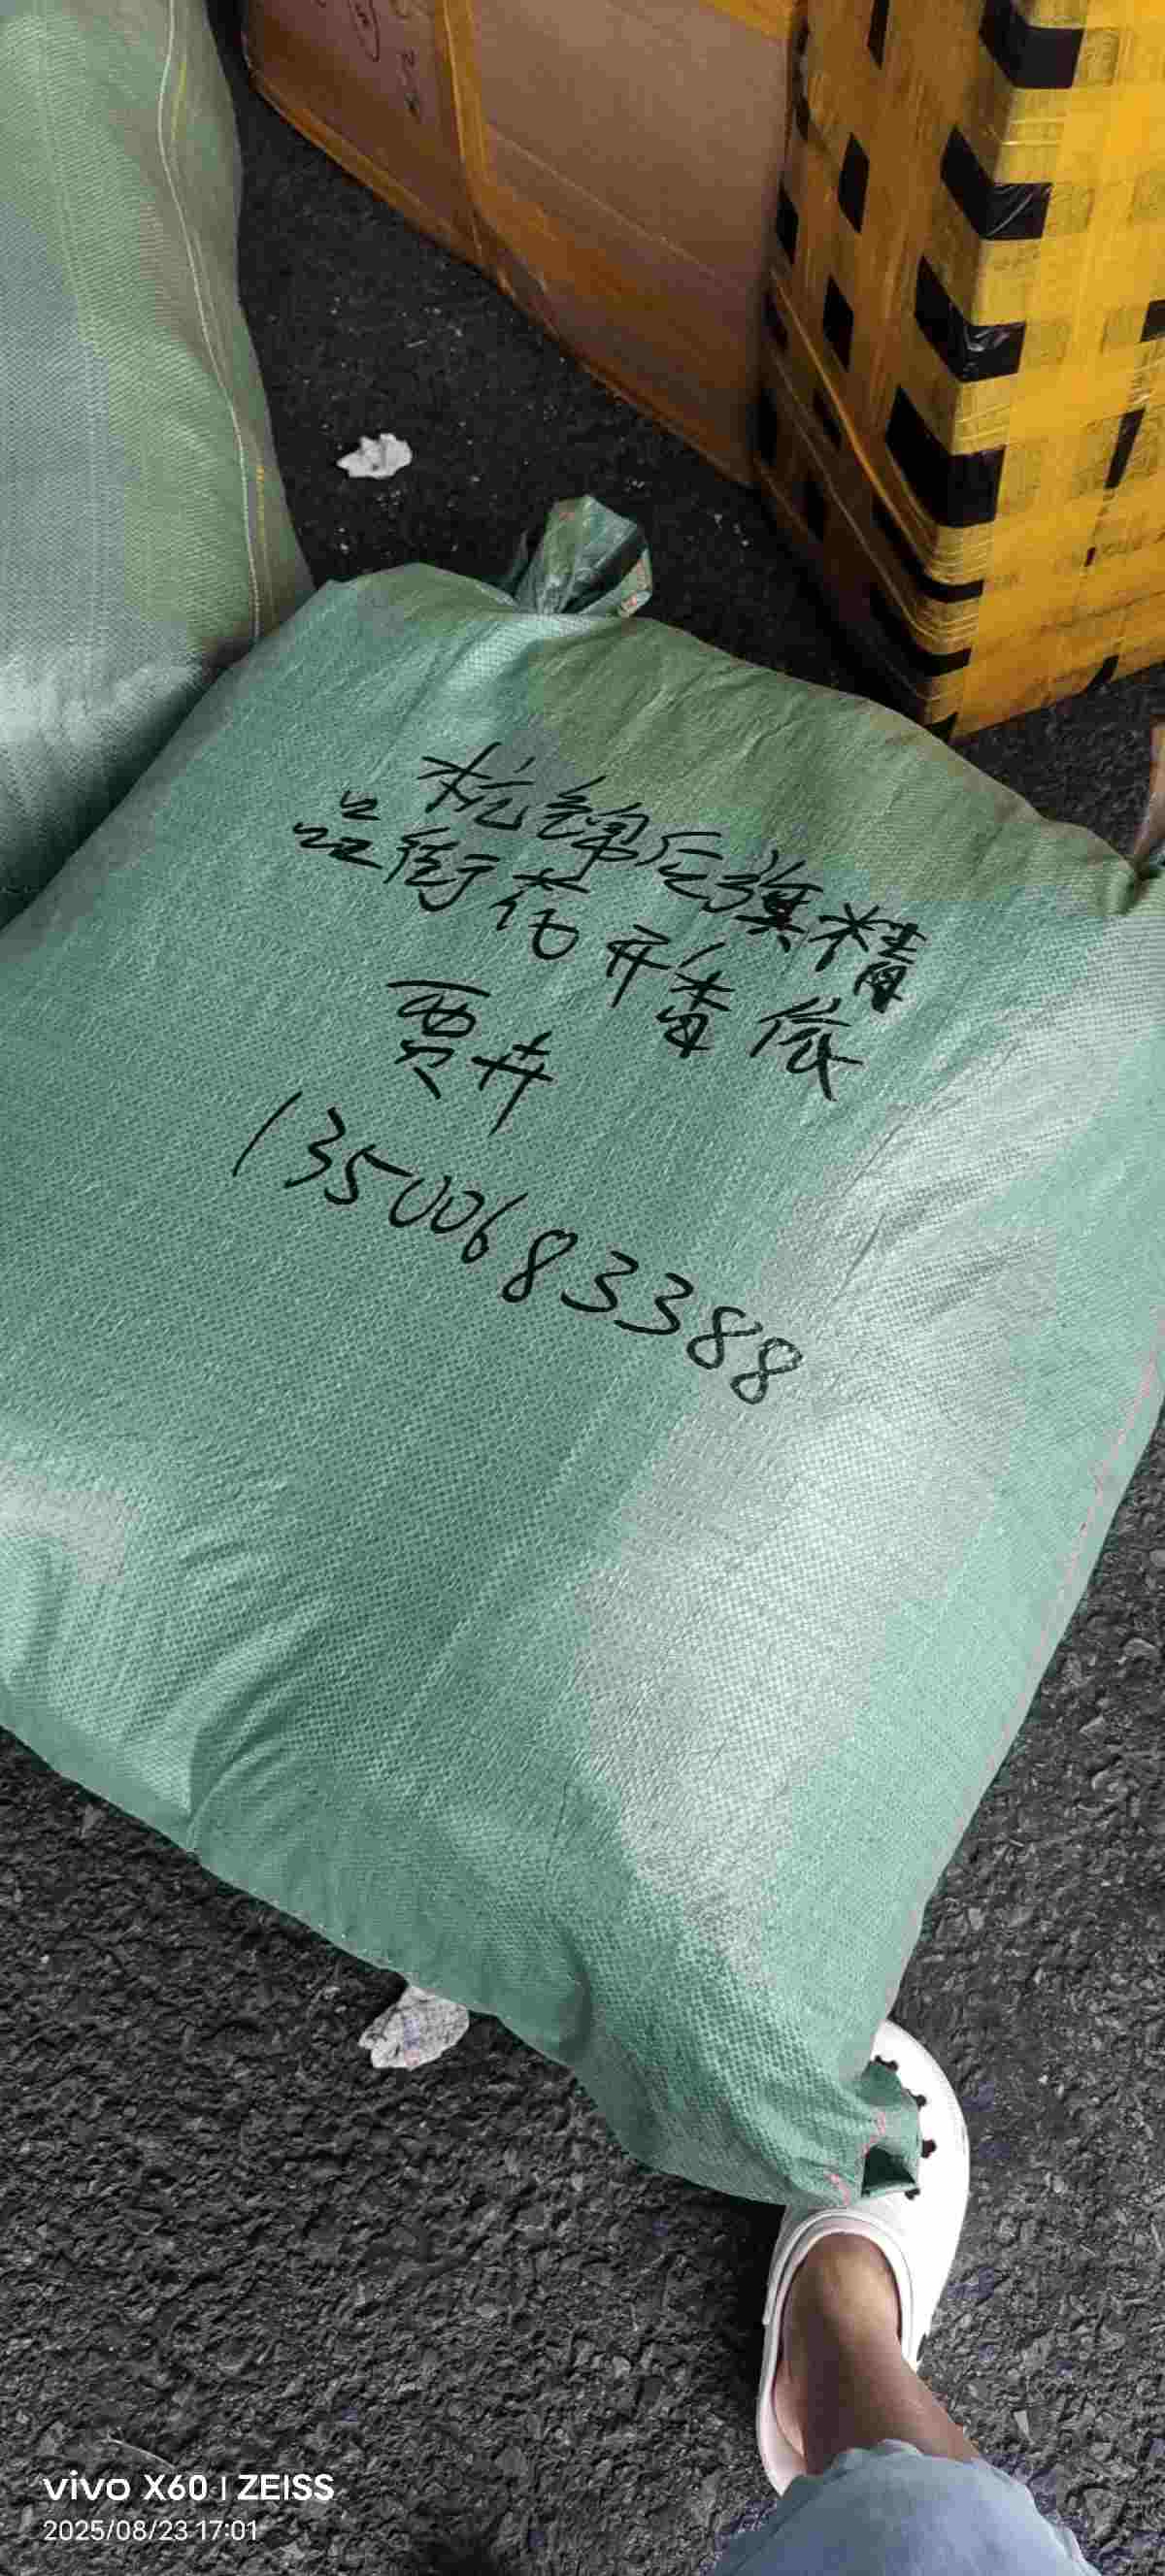 杭锦后旗精
品街花开春依
贾卉
13500683388
vivo X60 | ZEISS
2025/08/23 17:01